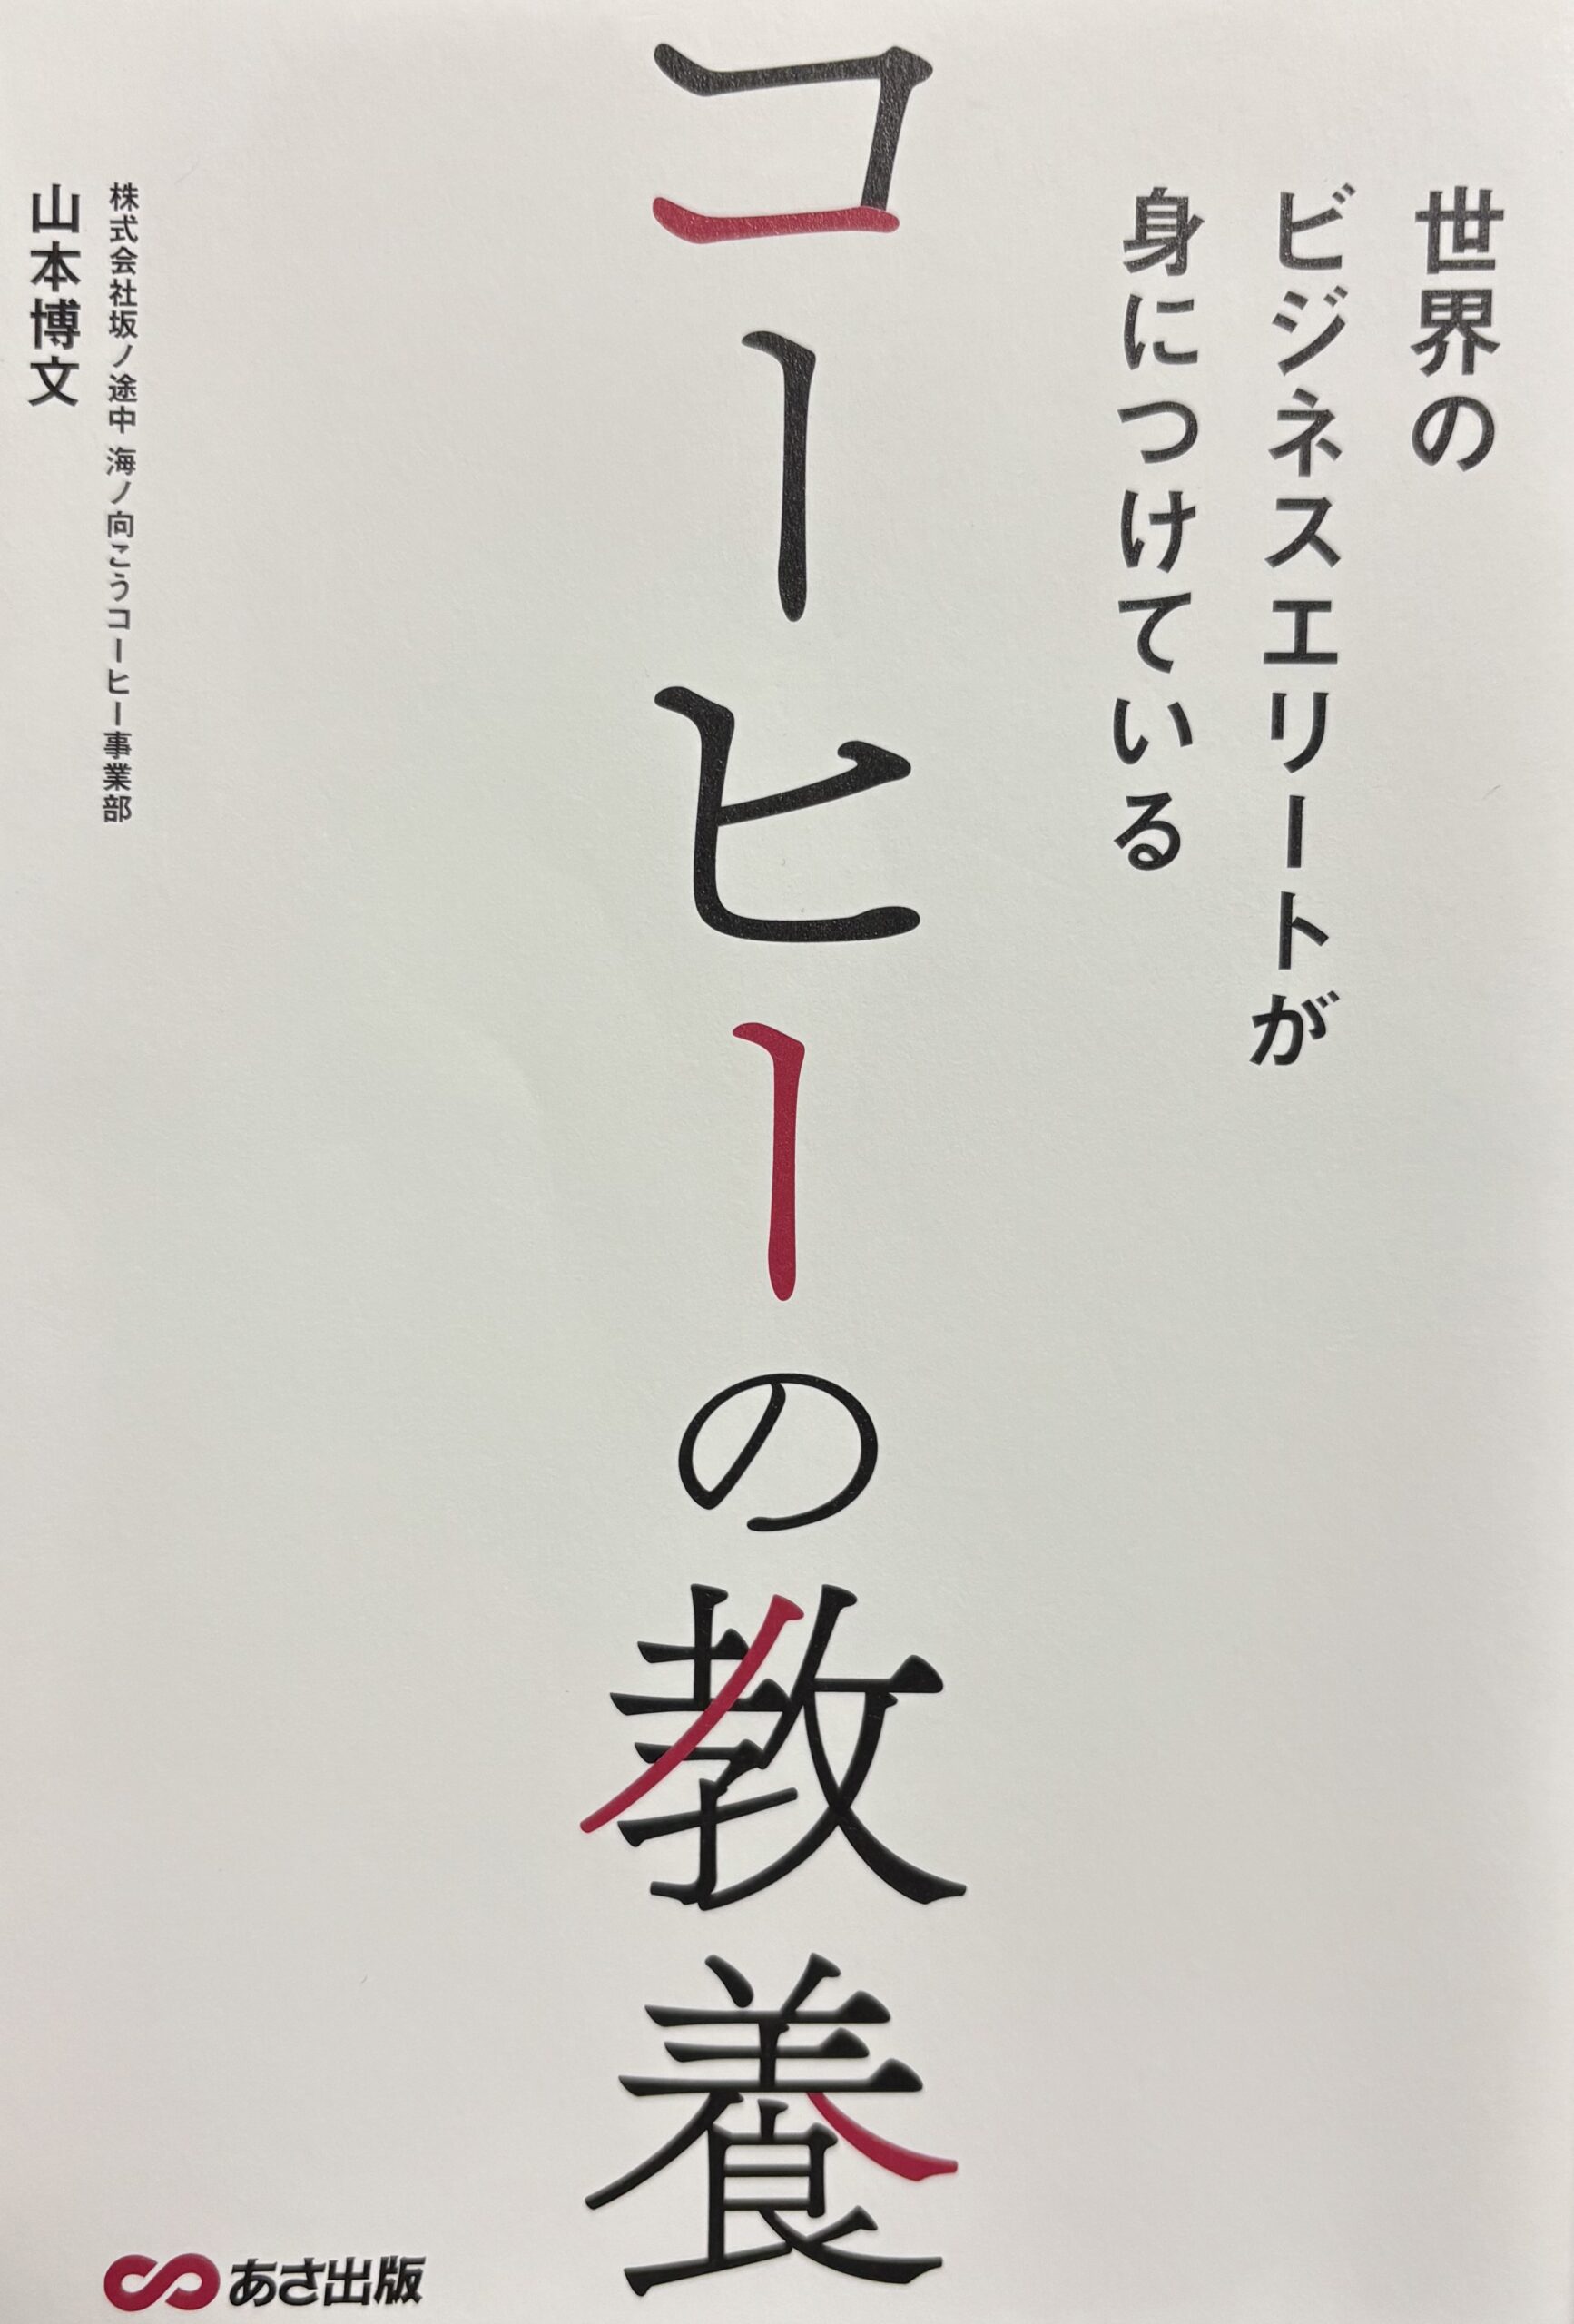 世界の
ビジネスエリートが
身につけている
コーヒーの教養
株式会社坂ノ途中 海ノ向こうコーヒー事業部
山本博文
あさ出版